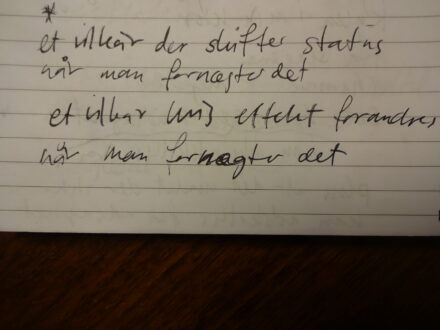 *
et vilkår der skifter status
når man fornægter det
et vilkår hvis effekt forandres
når man fornægter det